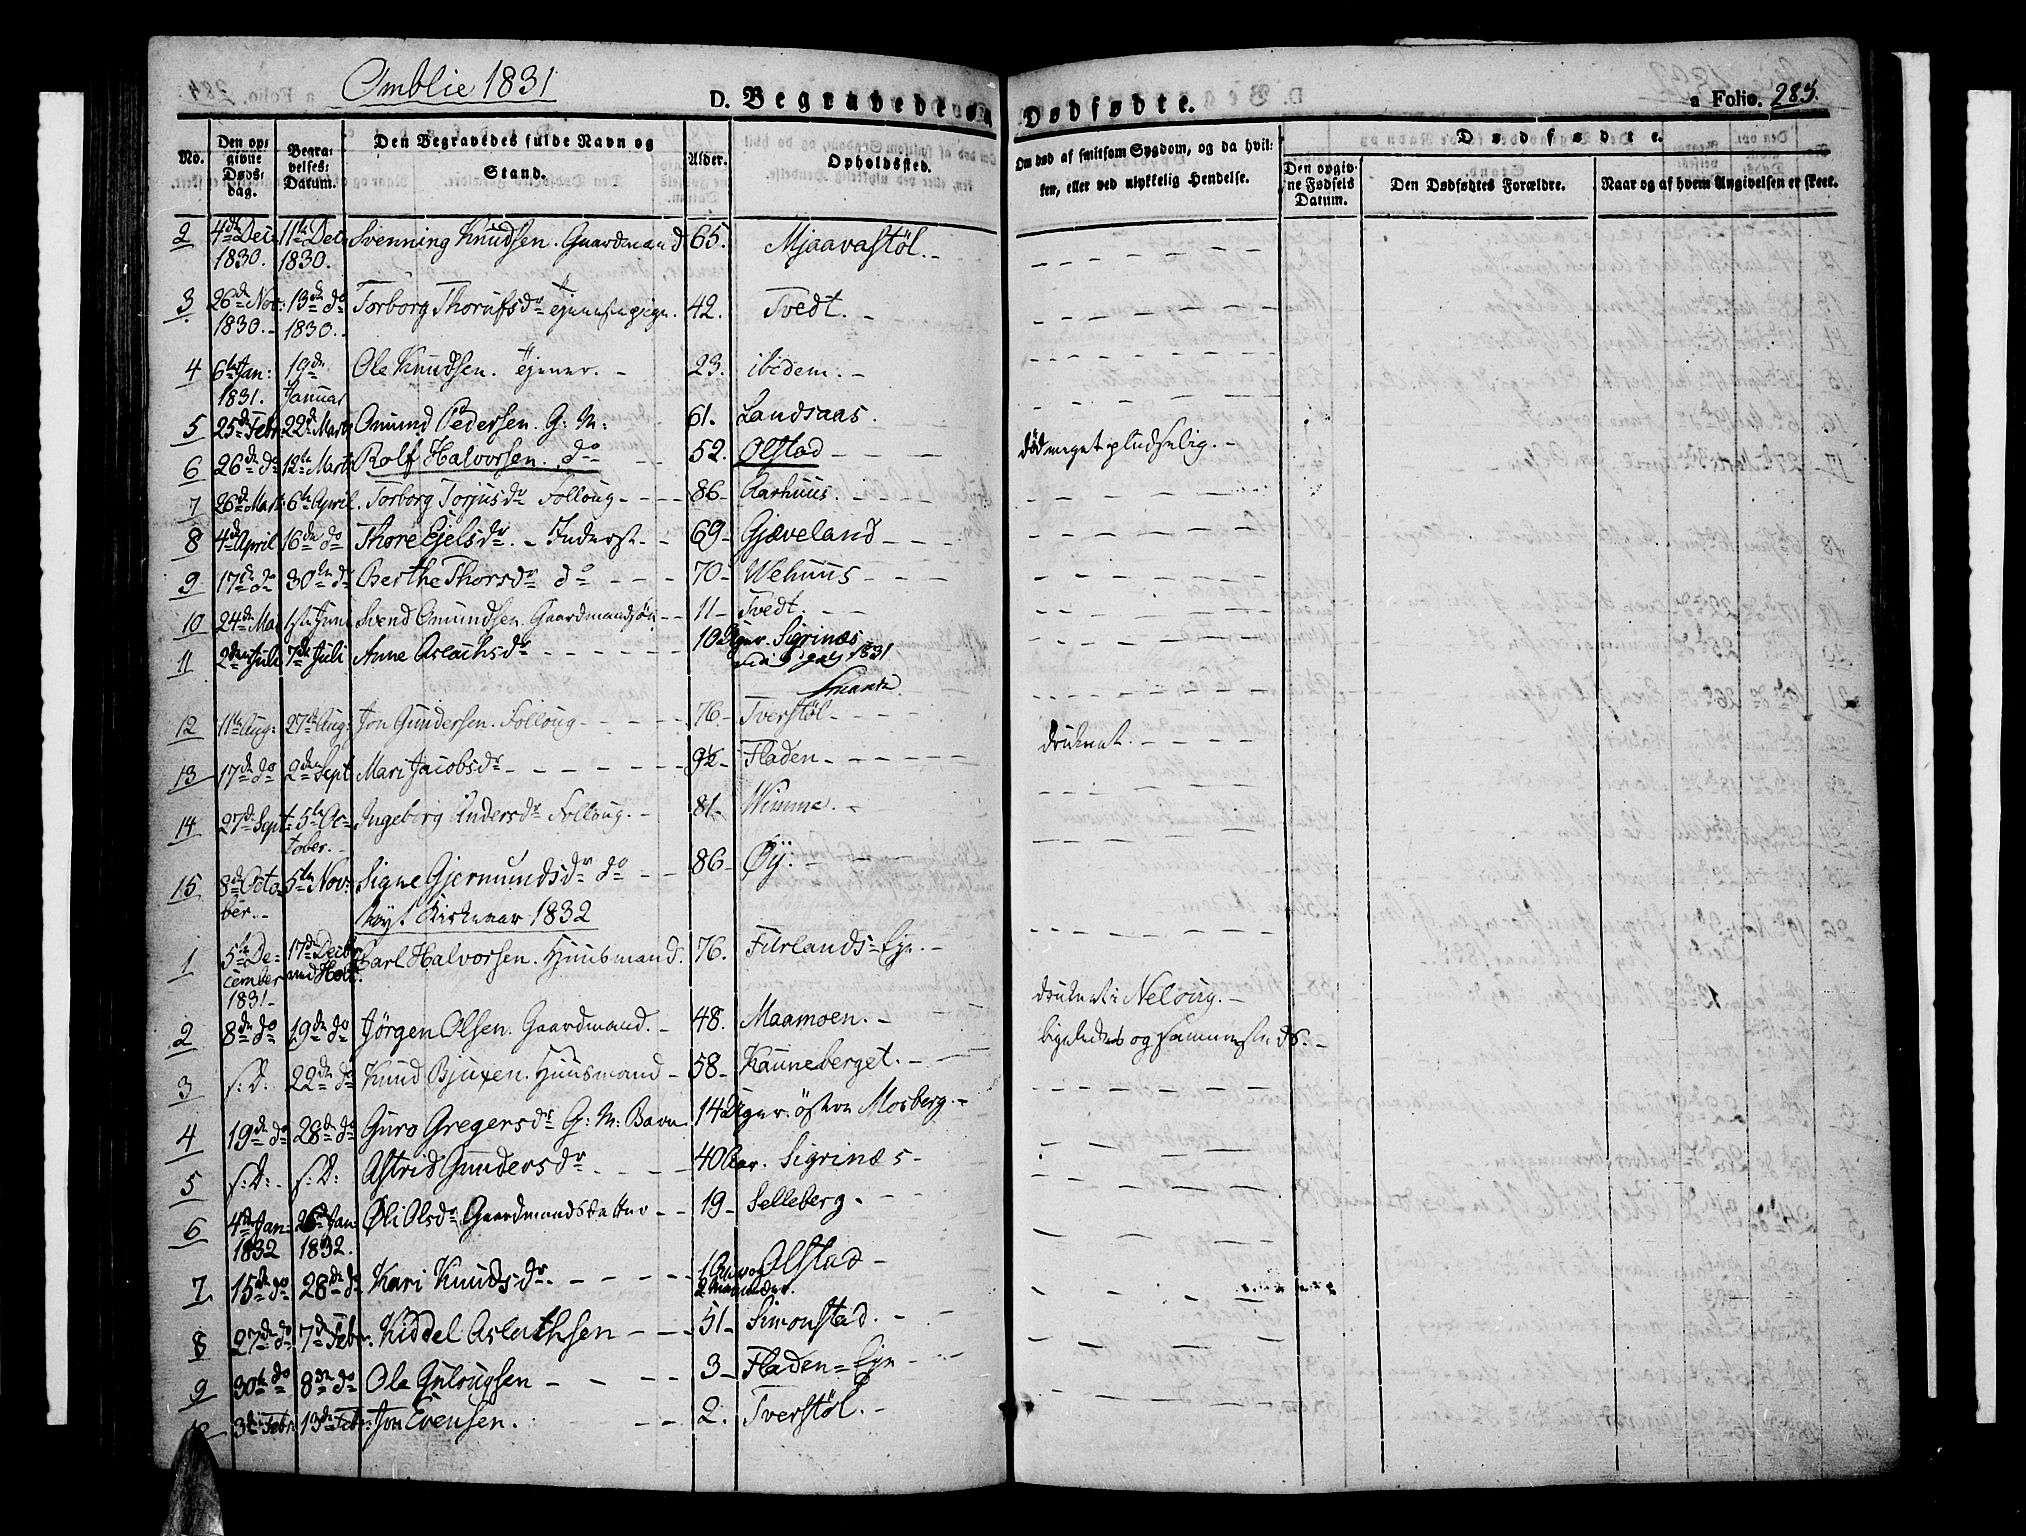 Omblie 1831
D. Begravede og Dødfødte.
a Folio. 285.
No.
Den opgivne Døds-dag.
Begravelses-Datum.
Den Begravedes fulde Navn og Stand.
Alder.
Opholdssted.
Om død af smitsom Sygdom, og da hvilken, eller ved ulykkelig Hendelse.
Dødfødte.
Den opgivne Fødsels Datum.
Den Dødfødtes Forældre.
Naar og af hvem Angivelsen er skeet.
2 4de Dec. 1830. 11te Dec. 1830. Svenning Knudsen. Gaardmand 65. Mjaavastøl.
3. 26de Nov: 1830. 13de do 1830. Torborg Tjenestepige. 42. Tvedt.
4 6te Jan: 1831. 19de Januar Ole Knudsen. Tjener. 23. ibidem.
5 25de Febr. 22de Marts Omund Pedersen. G: M: 61. Landsaas.
6 26de do 12te Marts Rolf Halvorsen. do 52. Olstad død meget pludselig.
7 26de Mart. 6te April. Torborg Torjusdr Folloug 86 Aarhuus.
8 4de April 16de do Thore Ejelsdr. Inderst 69 Gjæveland
9 17de do 30te do Berthe Thorsdr do 70 Wehuus
10 24de Mai 1ste Juni Svend Omundsen. Gaardmandsøn 11 Tvedt.
11 2den Juli 7de Juli Anne Aslachsdr 10 Uger. Sigrinæs
1831
12 11te Aug: 27de Aug: Jon Gundersen. Folloug 76 Tverstøl
13 17de do 2den Sept Mari Jacobsdr 9½ Fladen druknet.
14 27de Sept: 5te October. Ingeborg Andersdr Folloug. 81 Wimme.
15 8de October. 5te Nov: Signe Gjermundsdr do 86 Øÿ.
Nyt Kirkeaar 1832
1 5te December 1831 17de Decbr. ved Holt. Carl Halvorsen. Huusmand. 76. Eje.
2 8de do 19de do Jørgen Olsen. Gaardmand. 48. Maamoen. druknet i Neloug.
3 s: D: 22de do Knud Huusmand 58 Kauneberget. ligeledes og sammesteds.
4 19de do 28de do Guro Gregersdr G: M: Barn 14 Uger. østre Mosberg.
5 s: D: s: D: Astrid Gundersdr 40 Aar. Sigrinæs
6 4de Jan: 1832 26de Jan: 1832. Øli Olsdr Gaardmandsdatter 19 Selleberg.
7 15de do 28de do Kari Knudsdr. 1 Aar og 2 Maaneder. Olstad
8 27de do 7de Febr. Kiddel Aslachsen 51 Simonstad.
9 30te do 8de do Ole Gulougsen 3 Fladen=Eje
3de Febr: 13de Febr: Jon Evensen. 2. Tverstøl.